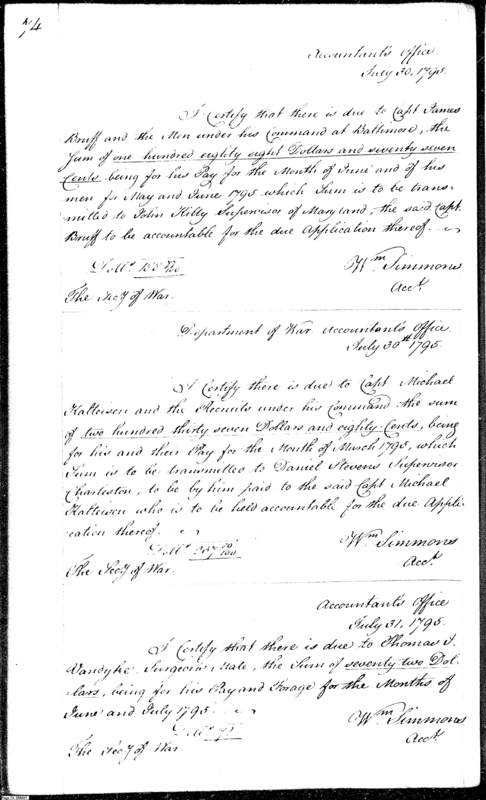 74
Accountant's Office
July 30, 1795.
I Certify that there is due to Capt James
Bruff and the Men under his Command at Baltimore, the
Sum of one hundred eighty eight Dollars and seventy seven
Cents, being for his Pay for the Month of June and of his
men for May and June 1795 which Sum is to be trans-
mitted to John Kilty Supervisor of Maryland, the said Capt.
Bruff to be accountable for the due Application thereof.
Dolls. 188 77/100
Wm Simmons
Acct.
The Secy of War.
Department of War Accountant's Office
July 30th 1795.
I Certify there is due to Capt Michael
Kalteisen and the Recruits under his Command the sum
of two hundred thirty seven Dollars and eighty Cents, being
for his and their Pay for the Month of March 1795, which
Sum is to be transmitted to Daniel Stevens Supervisor
Charleston, to be by him paid to the said Capt Michael
Kalteisen who is to be held accountable for the due Appli-
cation thereof.
Dolls.
Wm Simmons
Acct.
The Secy of War.
Accountant's Office
July 31, 1795.
I Certify that there is due to Thomas J.
Vandyke Surgeon's Mate, the Sum of seventy two Dol-
lars, being for his Pay and Forage for the Months of
June and July 1795.
Dolls. 72
Wm Simmons
Acct.
The Secy of War.